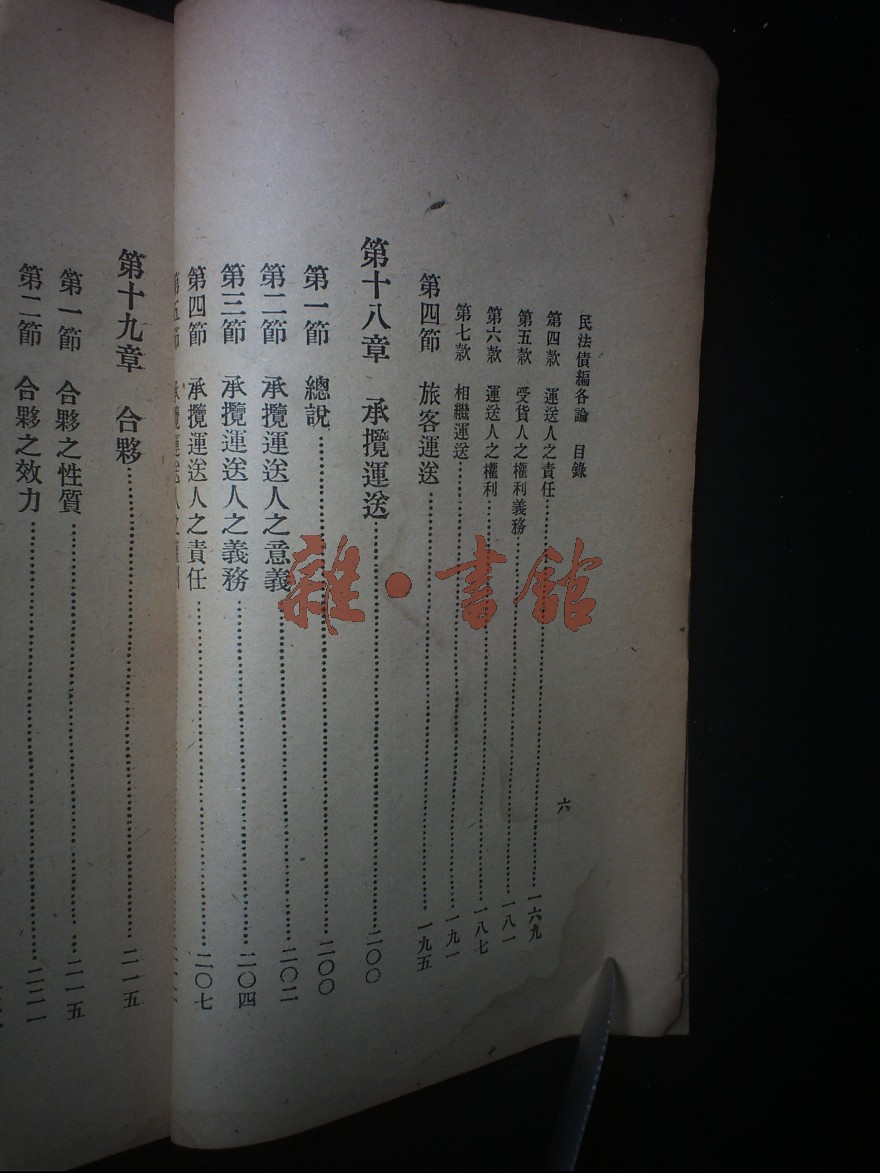 民法債編各論 目錄
六
第四款 運送人之責任……一六九
第五款 受貨人之權利義務……一八一
第六款 運送人之權利……一八七
第七款 相繼運送……一九一
第四節 旅客運送……一九五
第十八章 承攬運送……二〇〇
第一節 總說……二〇〇
第二節 承攬運送人之意義……二〇二
第三節 承攬運送人之義務……二〇四
第四節 承攬運送人之責任……二〇七
第五節 承攬運送人之權利……
第十九章 合夥……二一五
第一節 合夥之性質……二一五
第二節 合夥之效力……二二一
雜·書館